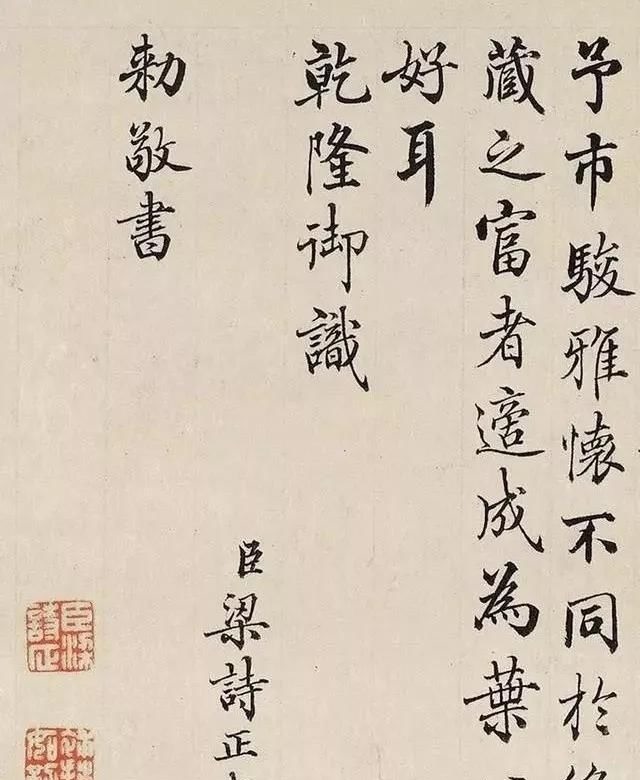 予市駿雅懷不同於
藏之富者適成為葉
好耳
乾隆御識
臣梁詩正
勅敬書
臣梁詩正